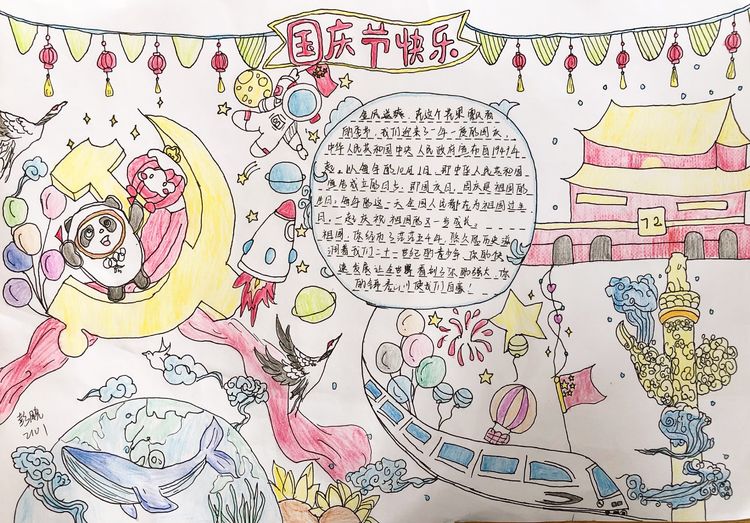 国庆节快乐
金风送爽,在这个花果飘香
的季节,我们迎来了一年一度的国庆,
中华人民共和国中央人民政府宣布自1949年
起,以每年的10月1日,即中华人民共和国
宣告成立的日子,即国庆日,国庆是祖国的
生日,每年的这一天全国人民都在为祖国过生
日,一起庆祝祖国的又一步成长。
祖国,你经历了茫茫五千年,悠久的历史滋
润着我们二十一世纪的青少年,你的快
速发展让全世界看到了你的强大,你
的使我们自豪!
72
2101